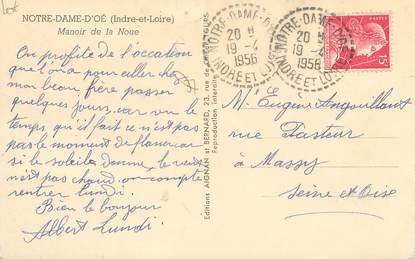 Lot
NOTRE-DAME-D'OÉ (Indre-et-Loire)
Manoir de la Noue
On profite de l'occation
que l'on a pour aller chez
mon beau frère passer
quelques jours, car vu le
temps qu'il fait ce n'est pas
pas le moment de flaner car
si le soleil donne, le vent
n'est pas chaud. on compte
rentrer lundi.
Bien le bonjour
Albert Lundi
Editions AIGNAN et BERNARD, 23, rue de
Reproduction interdite
NOTRE-DAME-D'OÉ
20 H
19 -4
1956
INDRE ET LOIRE
NOTRE-DAME-D'OÉ
20 H
19 -4
1956
INDRE ET LOIRE
15
Mr Eugène Angouillant
rue Pasteur
à Massy
Seine et Oise